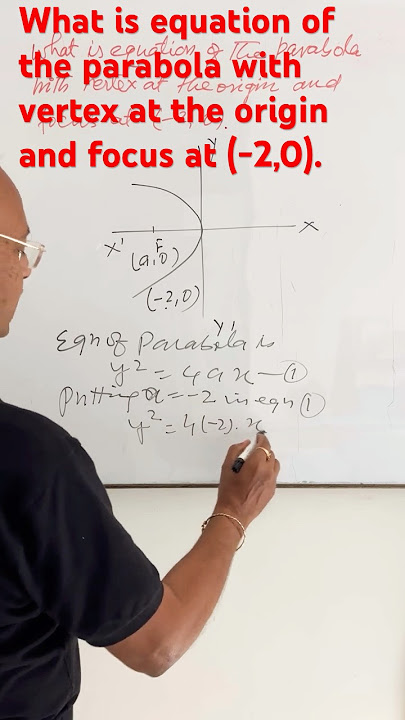 What is equation of
the parabola with
vertex at the origin
and focus at (-2,0).
What is equation of the parabola
with vertex at the origin and
Y
X' F X
(a,0)
(-2,0)
Y'
Eqn of Parabola is
y² = 4ax — ①
Putting a = -2 in eqn ①
y² = 4(-2).x